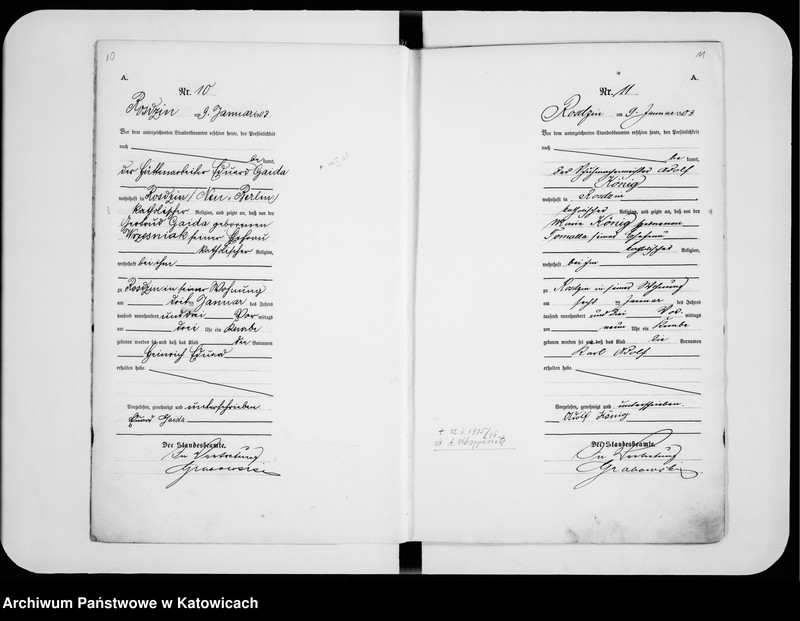 10
A.
Nr. 10
Rosdzin am 9. Januar 1903
Vor dem unterzeichneten Standesbeamten erschien heute, der Persönlichkeit
nach
be kannt,
der Hüttenarbeiter Eduard Gaida
wohnhaft in Rosdzin / Neu-Berlin /
katholischer Religion, und zeigte an, daß von der
Gertrud Gaida geborenen
Wrzesniak seiner Ehefrau
katholischer Religion,
wohnhaft bei ihm
zu Rosdzin in seiner Wohnung
am drei ten Januar des Jahres
tausend neunhundert und drei Vor mittags
um drei Uhr ein Knabe
geboren worden sei und daß das Kind die Vornamen
Heinrich Eduard
erhalten habe.
Vorgelesen, genehmigt und unterschrieben
Eduard Gaida
Der Standesbeamte.
In Vertretung
Grabowski
11
A.
Nr. 11
Rosdzin am 9. Januar 1903
Vor dem unterzeichneten Standesbeamten erschien heute, der Persönlichkeit
nach
be kannt,
der Schuhmachermeister Adolf
König
wohnhaft in Rosdzin
katholischer Religion, und zeigte an, daß von der
Marie König geborenen
Tomalla seiner Ehefrau
katholischer Religion,
wohnhaft bei ihm
zu Rosdzin in seiner Wohnung
am Januar des Jahres
tausend neunhundert und drei Vor mittags
um neun Uhr ein Knabe
geboren worden sei und daß das Kind die Vornamen
Karl Adolf
erhalten habe.
Vorgelesen, genehmigt und unterschrieben
Adolf König
Der Standesbeamte.
In Vertretung
Grabowski
Archiwum Państwowe w Katowicach